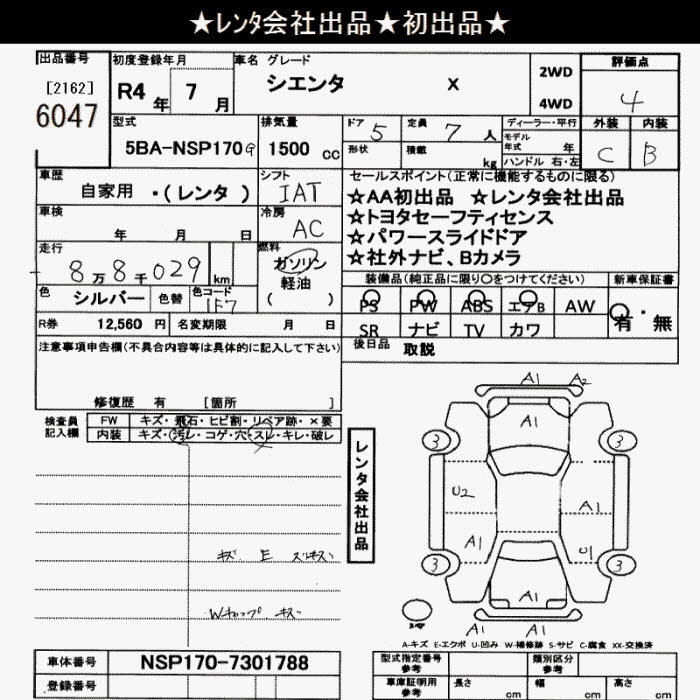 ★レンタ会社出品★初出品★
出品番号
[2162]
6047
初度登録年月
R4 年 7 月
車名 グレード
シエンタ X
2WD
4WD
評価点
4
外装 内装
C B
型式
5BA-NSP170G
排気量
1500 cc
ドア 5
定員 7 人
形状
積載 kg
ディーラー・平行
モデル年式 年
ハンドル 右・左
車歴
自家用 ・(レンタ )
シフト
IAT
車検
年 月 日
冷房
AC
走行
8万8千029 km
燃料
ガソリン
軽油
( )
色 シルバー 色替 色コード 1F7
R券 12,560 円 名変期限 月 日
セールスポイント(正常に機能するものに限る)
☆AA初出品 ☆レンタ会社出品
☆トヨタセーフティセンス
☆パワースライドドア
☆社外ナビ、Bカメラ
装備品(純正品に限り〇をつけてください)
新車保証書
PS PW ABS エアB AW
SR ナビ TV カワ
有・無
後日品 取説
注意事項申告欄(不具合内容等は具体的に記入して下さい)
修復歴 有 [箇所 ]
検査員記入欄
FW キズ・飛石・ヒビ割・リペア跡・×要
内装 キズ・汚レ・コゲ・穴・スレ・キレ・破レ
キズ E
Wキャップ キズ
レンタ会社出品
A1 A2
A1
3 3
U2
A1
A1
U1
3 3
A1
A1 A1
A-キズ E-エクボ U-凹み W-補修跡 S-サビ C-腐食 XX-交換済
車体番号 NSP170-7301788
登録番号
型式指定番号参考
類別区分参考
車庫証明用参考
長さ cm
幅 cm
高さ cm